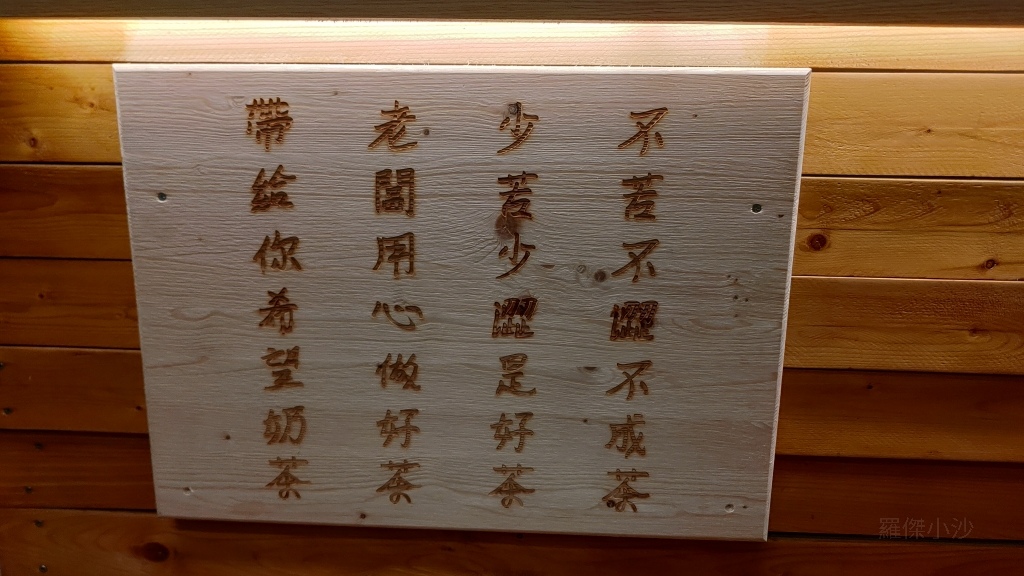 不苦不澀不成茶
少苦少澀是好茶
老闆用心做好茶
帶給你希望奶茶
羅傑小沙